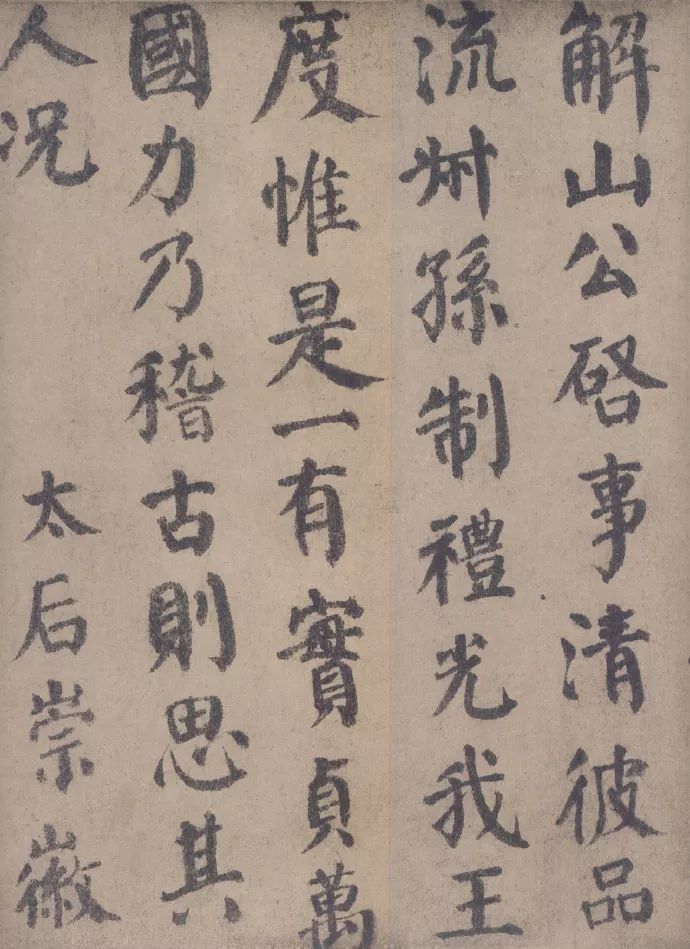 解山公啓事清彼品
流叔孫制禮光我王
度惟是一有實貞萬
國力乃稽古則思其
人况 太后崇徽